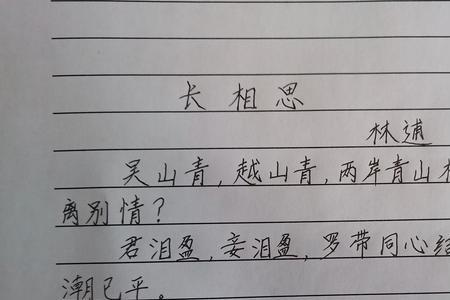 长相思
林逋
吴山青，越山青，两岸青山
离别情？
君泪盈，妾泪盈，罗带同心结
潮已平。